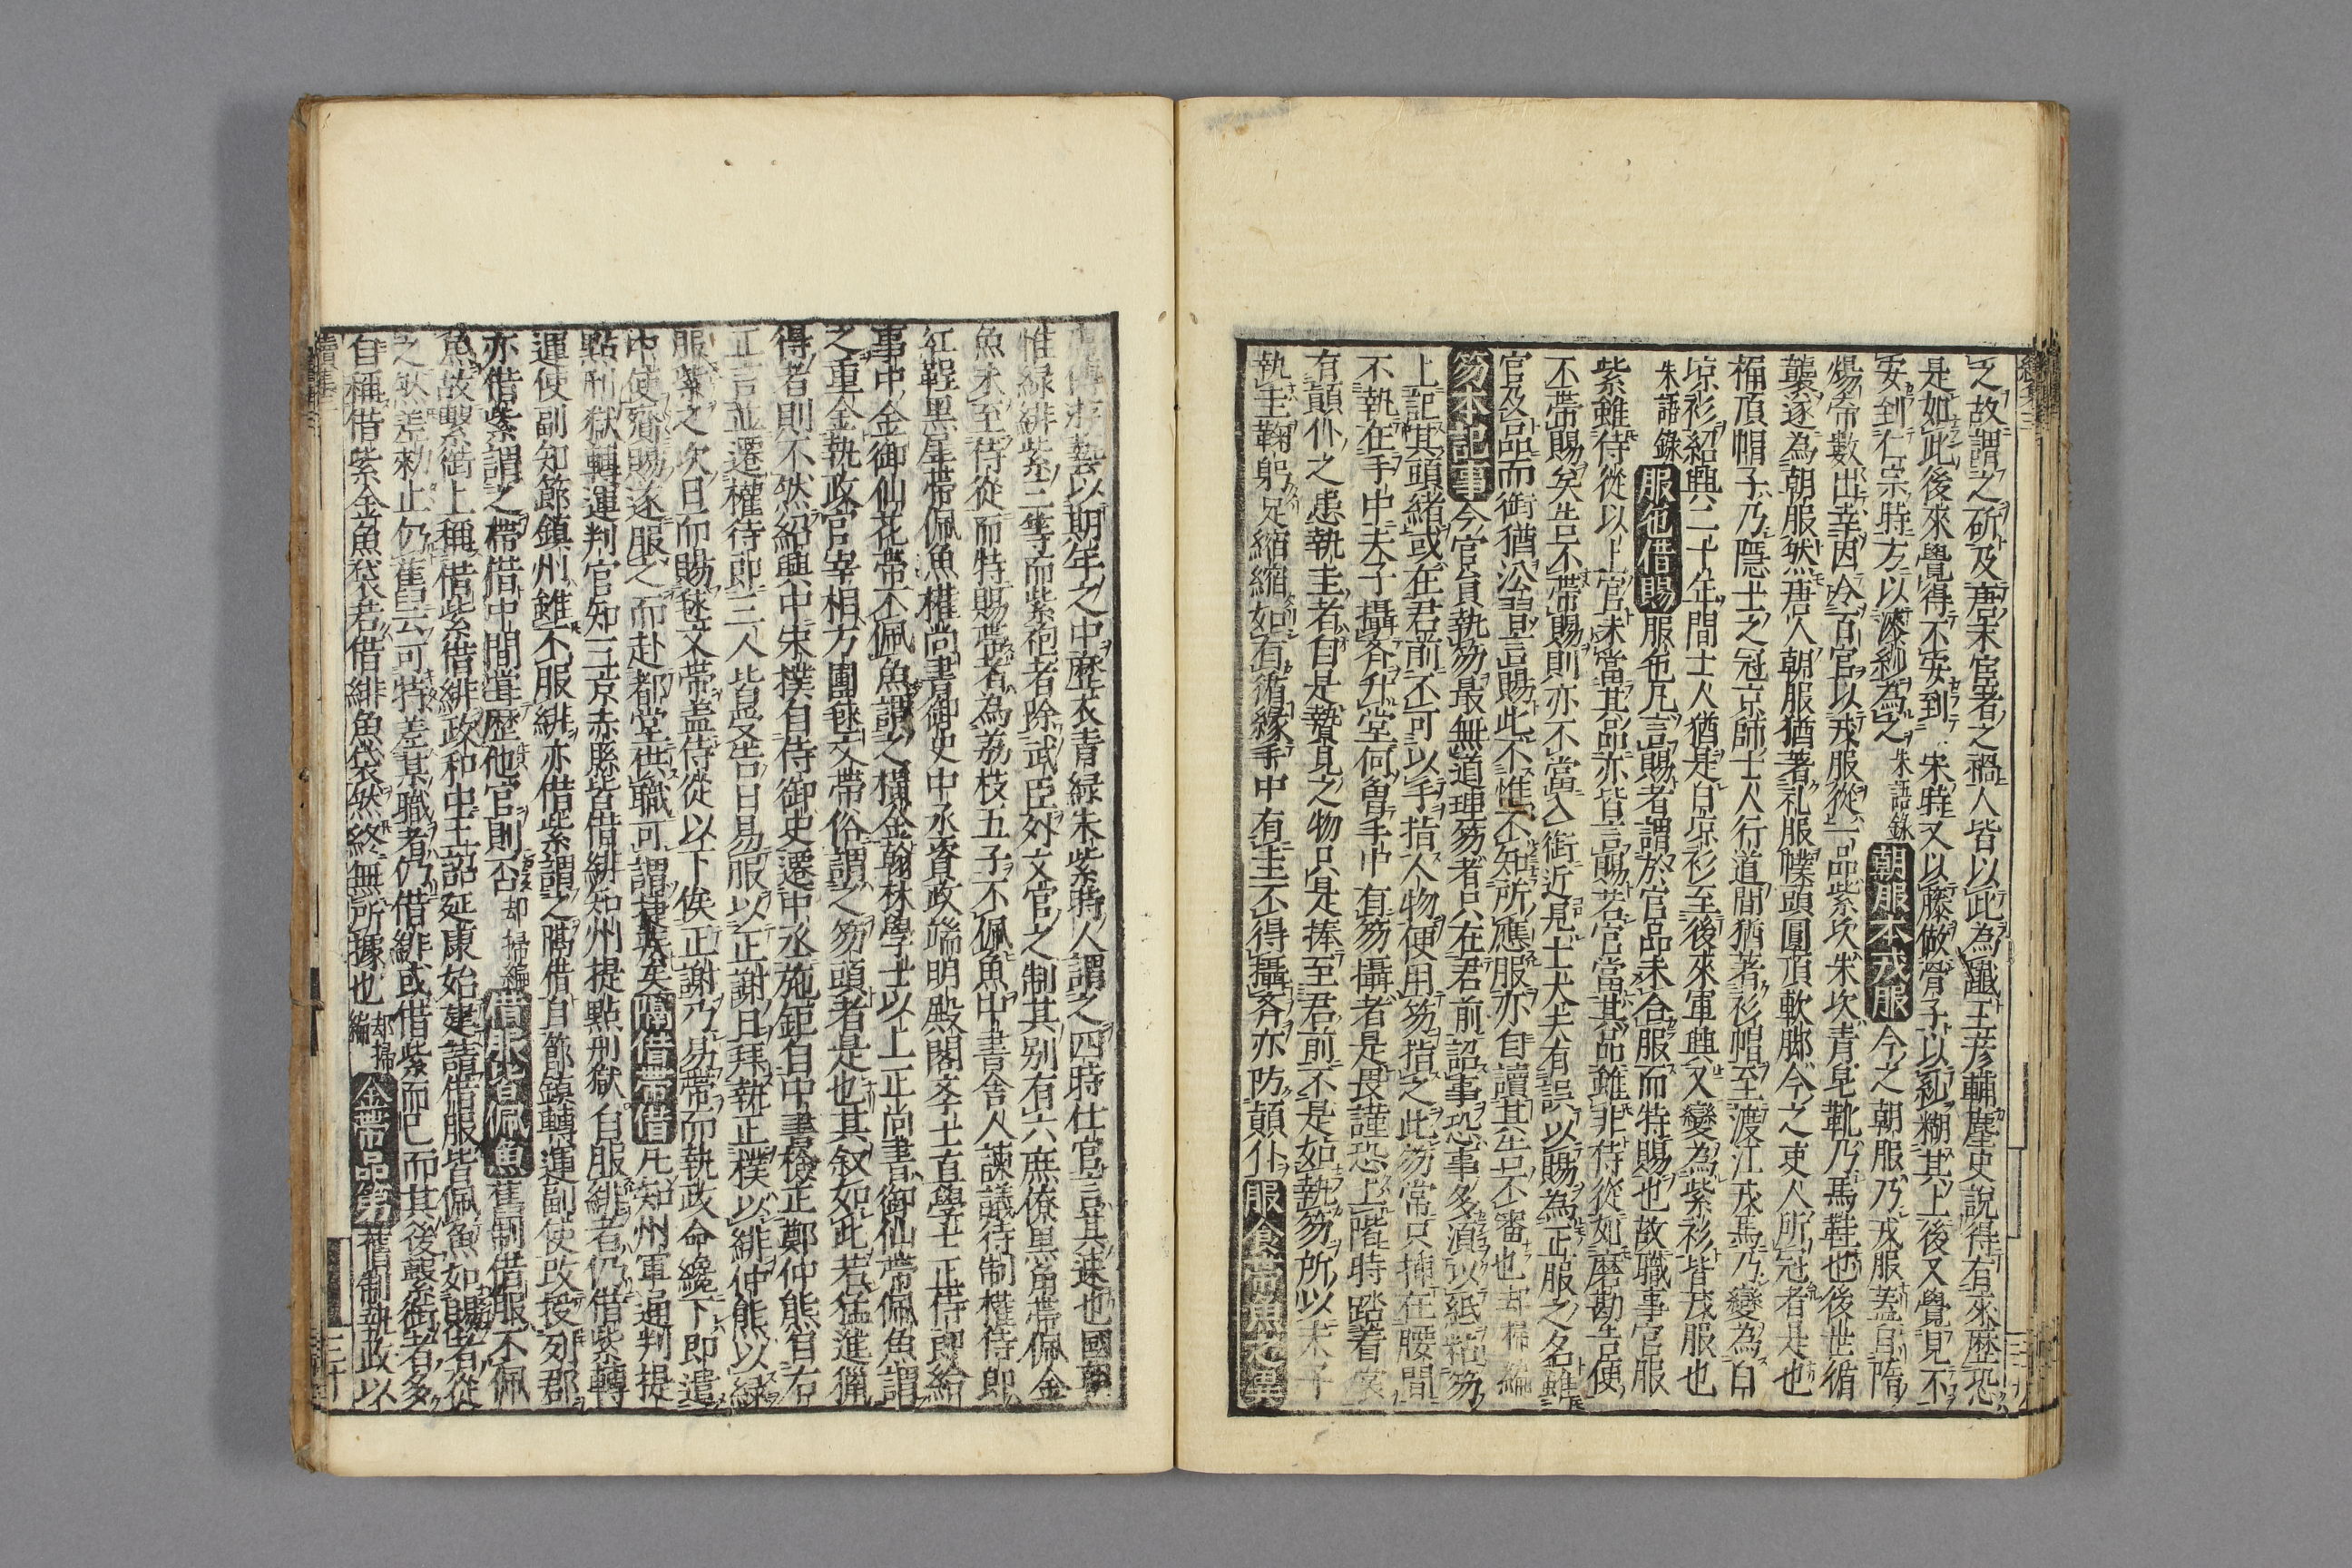 之故謂之斫及唐末宦者之禍人皆以此為讖王彦輔塵史說得有來歴恐
是如此後來覺得不安到宋時又以藤做骨子以紗糊其上後又覺見不
安到仁宗時方以漆紗為之朱語錄朝服本戎服今之朝服乃戎服蓋自隋
煬帝數出幸因令百官以戎服從一品紫次朱次青皂靴乃馬鞋也後世循
襲遂為朝服然唐人朝服猶著礼服幞頭圓頂軟脚今之吏人所冠者是也
桶頂帽子乃隱士之冠京師士人行道間猶著衫帽至渡江戎馬乃變為白
凉衫紹興二十年間士人猶是白凉衫至後來軍興又變為紫衫皆茂服也
朱語錄服色借賜服色凡言賜者謂於官品未合服而特賜也故職事官服
紫雖侍從以上官未當其品亦皆言賜若官當其品雖非侍從如磨勘告便
不帶賜矣告不帶賜則亦不當入銜近見士大夫有誤以賜為正服之名雖
官及品而銜猶沿習言賜此不惟不知所應服亦自讀其告不審也却掃編
笏本記事今官員執笏最無道理笏者只在君前記事恐事多須以紙粘笏
上記其頭緒或在君前不可以手指人物便用笏指之此笏常只揷在腰間
不執在手中夫子攝齊升堂何魯手中有笏攝者是畏謹恐上階時踏着裳
有顚仆之患執圭者自是贄見之物只是捧至君前不是如執笏所以末子
執圭鞠躬足縮縮如有循緣手中有圭不得攝齊亦防顚仆服食帶魚之異
以期年之中歴衣青綠朱紫時人謂之四時仕宦言其速也國朝
惟綠緋紫三等而紫袍者除武臣外文官之制其別有六庶僚黑角帶佩金
魚未至侍從而特賜帶者為荔枝五子不佩魚中書舍人諫議待制權侍郎
紅鞓黑犀帶佩魚權尚書御史中丞資政端明殿閣文士直學士正侍郎給
事中金御仙花帶不佩魚謂之橫金翰林學士以上正尚書御仙帶佩魚謂
之重金執政官宰相方團毬文帶俗謂之笏頭者是也其叙如此若猛進獵
得者則不然紹興中宋樸自侍御史遷中丞施鉅自中書檢正鄭仲熊自右
正言並遷權侍郎三人皆受告日易服以正謝且拜執正樸以緋仲熊以綠
服紫之次日而賜毬文帶盖侍從以下俟正謝乃易帶而執政命纔下即遣
中使齎賜遂服之而赴都堂供職可謂捷疾矣隔借帶借凡知州軍通判提
點刑獄轉運判官知三京赤縣皆借緋知州提點刑獄自服緋者仍借紫轉
運使副知節鎮州雖不服緋亦借紫謂之隔借自節鎮轉運副使改授列郡
亦借紫謂之帶借中間當歴他官則否却掃編借服皆佩魚舊制借服不佩
魚故繫銜上稱借紫借緋政和中王詔延康始建請借服皆佩魚如賜者從
之
自稱借紫金魚袋若借緋魚袋然終無所據也却掃編金帶品第舊制執政以